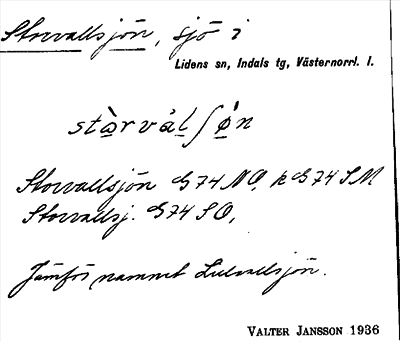 Storvallsjön, sjö i
Lidens sn, Indals tg, Västernorrl. l.
stårvålʃøn
Storvallsjön G74 NO, k G74 SM
Storvallsj. G74 SO,
Jämför namnet Lillvallsjön.
VALTER JANSSON 1936